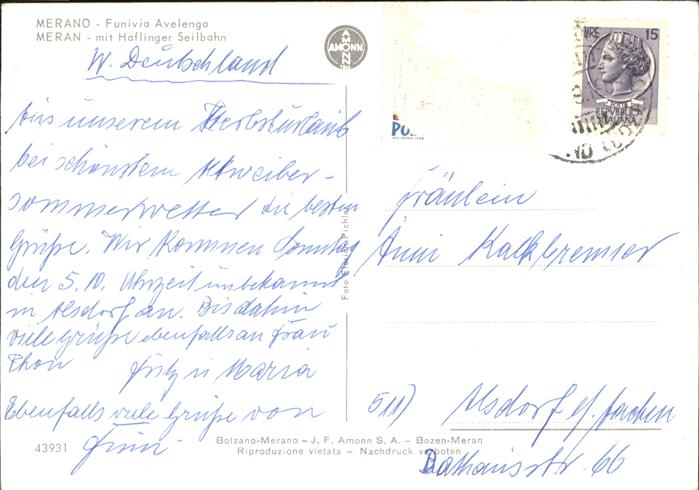 MERANO - Funivia Avelengo
MERAN - mit Haflinger Seilbahn
W. Deutschland
Aus unserem Herbsturlaub
bei schönstem Altweiber-
sommerwetter die besten
Grüße. Wir kommen Sonntag
den 5.10. Uhrzeit unbekannt
in Alsdorf an. Bis dahin
viele Grüße ebenfalls an Frau
Thon Fritz u Maria
Ebenfalls viele Grüße von
43931
AMONN
LIRE 15
REPUBBLICA
ITALIANA
Fräulein
Anni Kalkbrenner
511) Alsdorf b/ Aachen
Rathausstr. 66
Bolzano-Merano - J. F. Amonn S. A. - Bozen-Meran
Riproduzione vietata - Nachdruck verboten